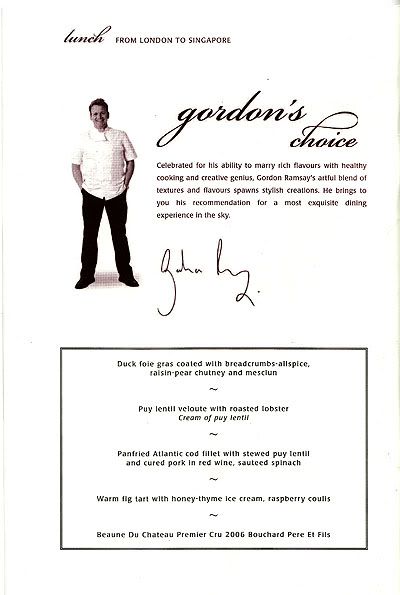 lunch FROM LONDON TO SINGAPORE
gordon's
choice
Celebrated for his ability to marry rich flavours with healthy
cooking and creative genius, Gordon Ramsay's artful blend of
textures and flavours spawns stylish creations. He brings to
you his recommendation for a most exquisite dining
experience in the sky.
Duck foie gras coated with breadcrumbs-allspice,
raisin-pear chutney and mesclun
~
Puy lentil veloute with roasted lobster
Cream of puy lentil
~
Panfried Atlantic cod fillet with stewed puy lentil
and cured pork in red wine, sauteed spinach
~
Warm fig tart with honey-thyme ice cream, raspberry coulis
~
Beaune Du Chateau Premier Cru 2006 Bouchard Pere Et Fils